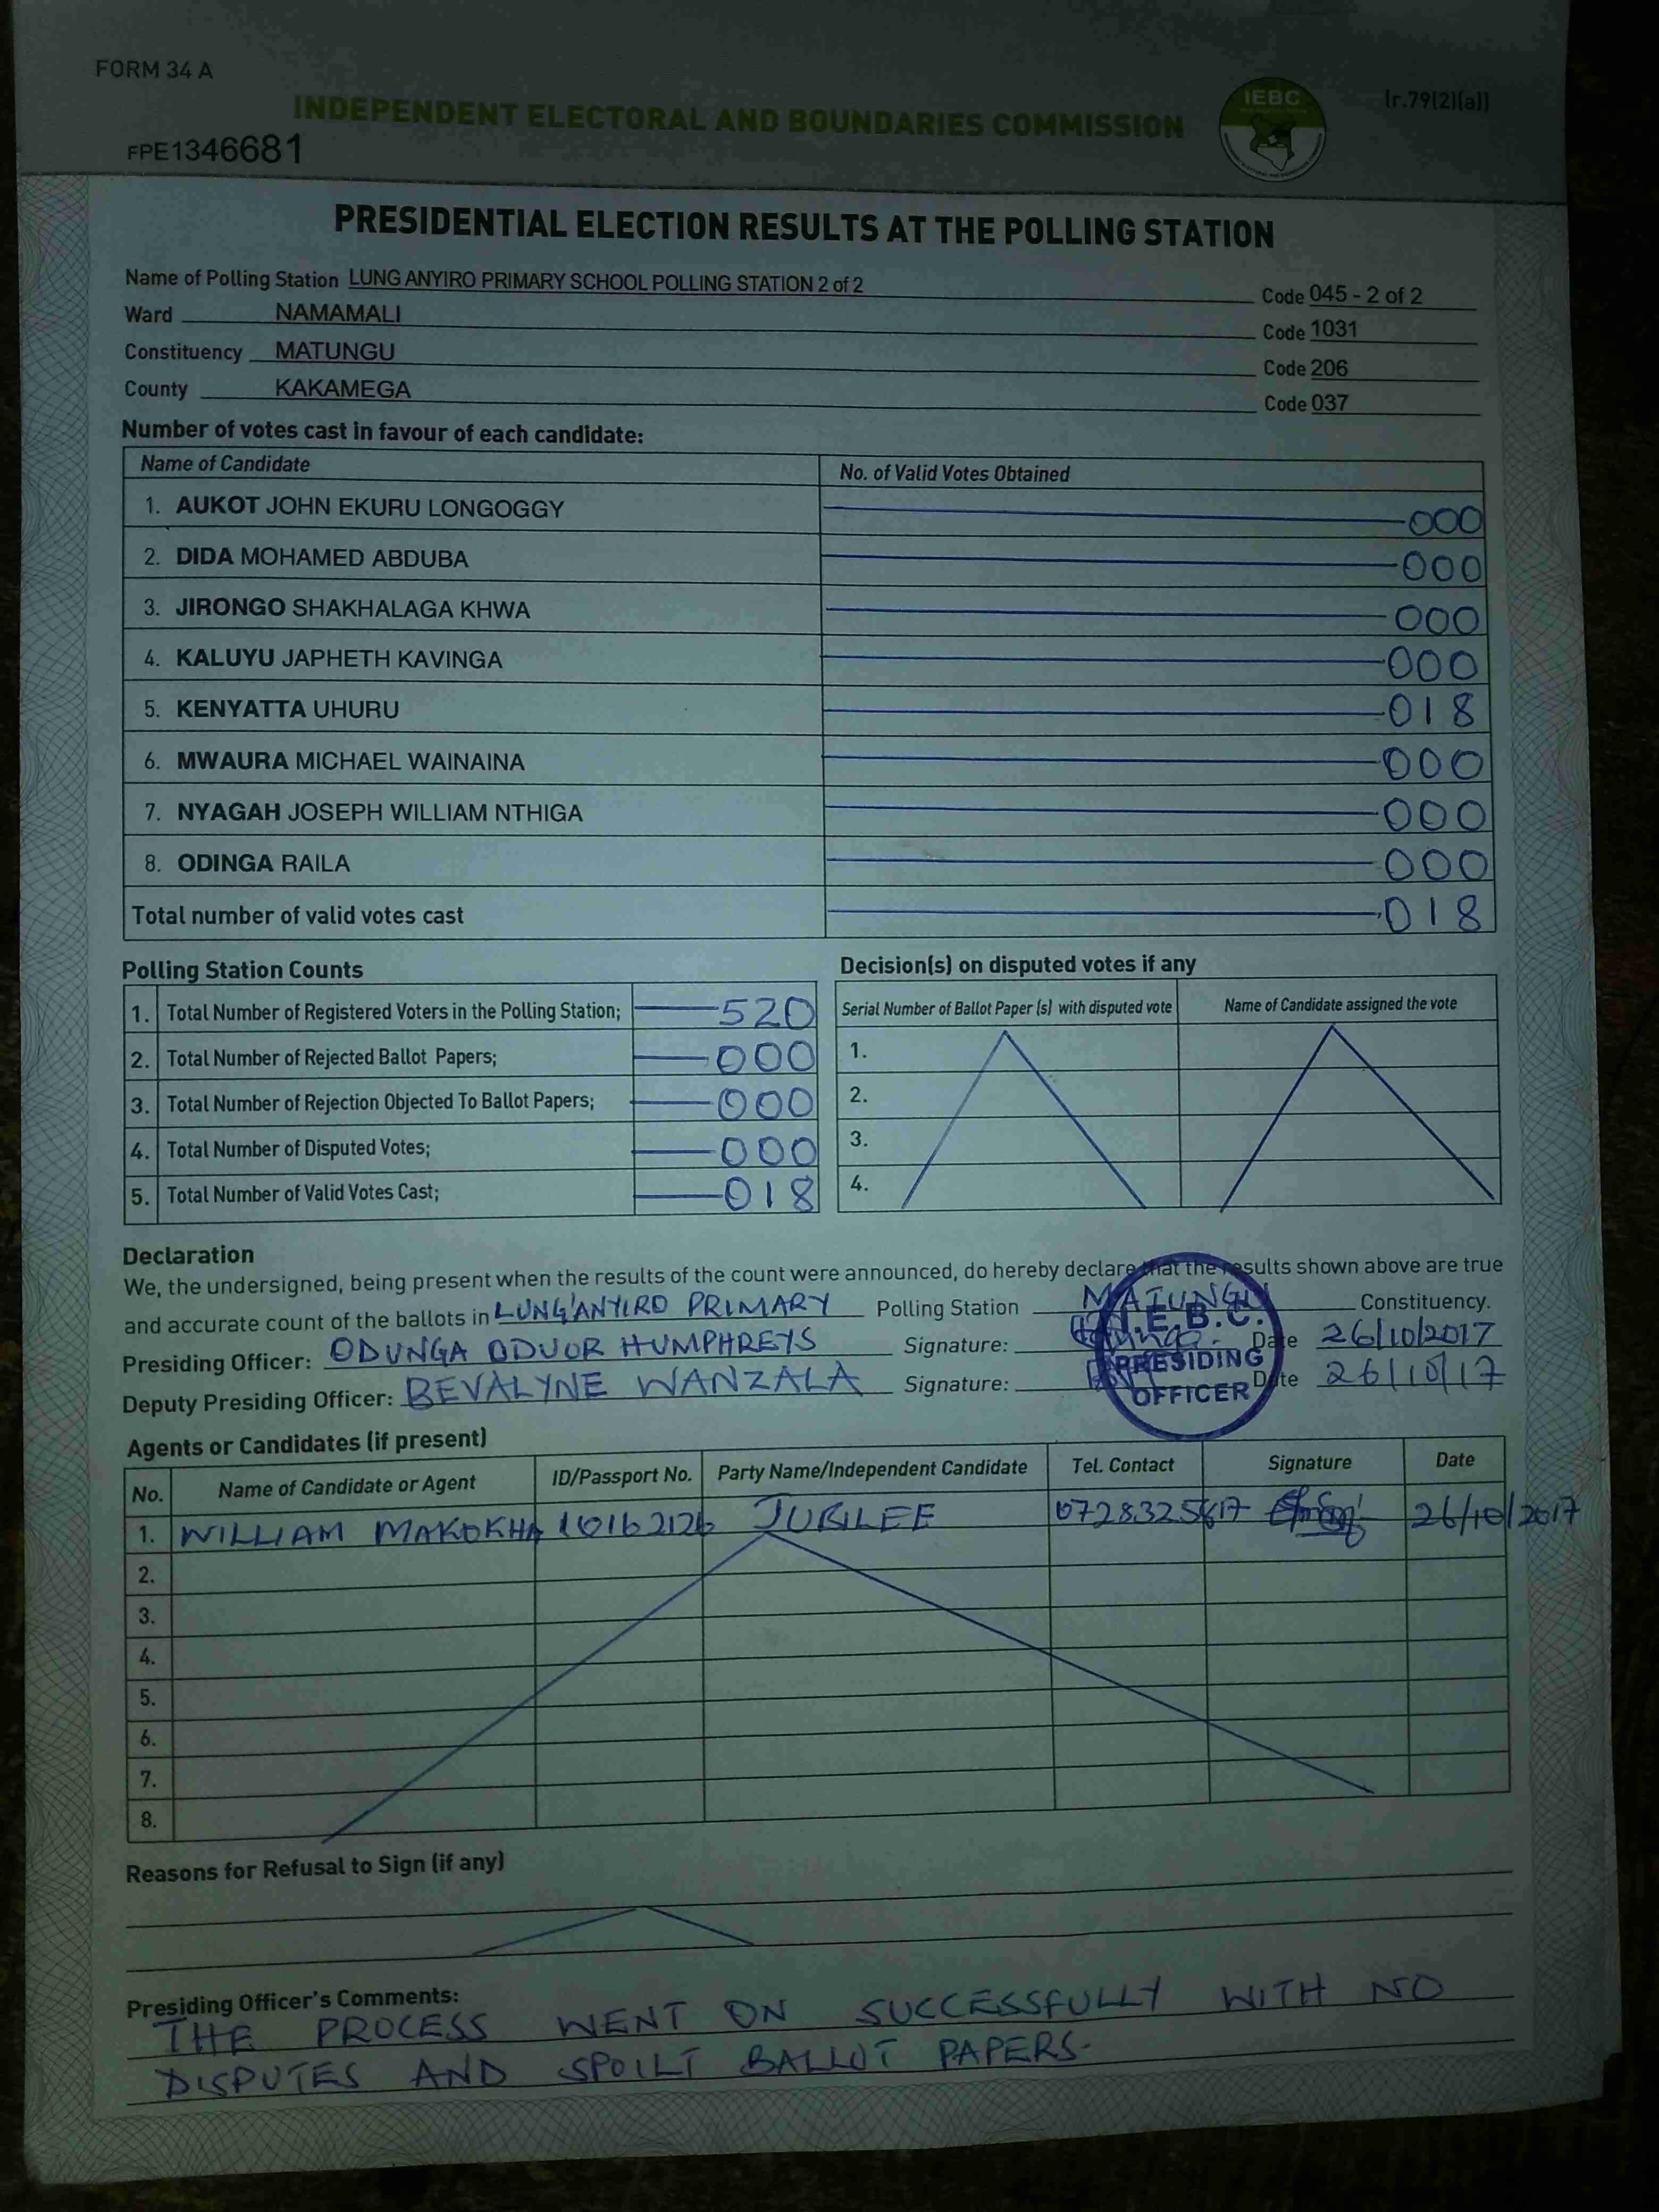 FORM 34 A
INDEPENDENT ELECTORAL AND BOUNDARIES COMMISSION
IEBC
(r.79(2)(a))
FPE1346681
PRESIDENTIAL ELECTION RESULTS AT THE POLLING STATION
Name of Polling Station LUNG ANYIRO PRIMARY SCHOOL POLLING STATION 2 of 2 Code 045 - 2 of 2
Ward NAMAMALI Code 1031
Constituency MATUNGU Code 206
County KAKAMEGA Code 037
Number of votes cast in favour of each candidate:
Name of Candidate No. of Valid Votes Obtained
1. AUKOT JOHN EKURU LONGOGGY 000
2. DIDA MOHAMED ABDUBA 000
3. JIRONGO SHAKHALAGA KHWA 000
4. KALUYU JAPHETH KAVINGA 000
5. KENYATTA UHURU 018
6. MWAURA MICHAEL WAINAINA 000
7. NYAGAH JOSEPH WILLIAM NTHIGA 000
8. ODINGA RAILA 000
Total number of valid votes cast 018
Polling Station Counts
1. Total Number of Registered Voters in the Polling Station; 520
2. Total Number of Rejected Ballot Papers; 000
3. Total Number of Rejection Objected To Ballot Papers; 000
4. Total Number of Disputed Votes; 000
5. Total Number of Valid Votes Cast; 018
Decision(s) on disputed votes if any
Serial Number of Ballot Paper (s) with disputed vote Name of Candidate assigned the vote
1.
2.
3.
4.
Declaration
We, the undersigned, being present when the results of the count were announced, do hereby declare that the results shown above are true
and accurate count of the ballots in LUNG'ANYIRO PRIMARY Polling Station MATUNGU Constituency.
Presiding Officer: ODUNGA ODUOR HUMPHREYS Signature: Date 26/10/2017
Deputy Presiding Officer: BEVALYNE WANZALA Signature: Date 26/10/17
I.E.B.C.
PRESIDING
OFFICER
Agents or Candidates (if present)
No. Name of Candidate or Agent ID/Passport No. Party Name/Independent Candidate Tel. Contact Signature Date
1. WILLIAM MAKOKHA 10162126 JUBILEE 0728325617 26/10/2017
2.
3.
4.
5.
6.
7.
8.
Reasons for Refusal to Sign (if any)
Presiding Officer's Comments:
THE PROCESS WENT ON SUCCESSFULLY WITH NO
DISPUTES AND SPOILT BALLOT PAPERS.